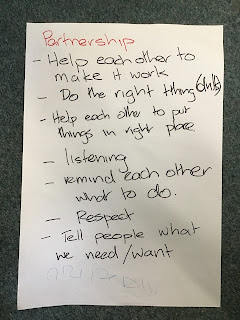 Partnership
- Help each other to
make it work
- Do the right thing (adults)
- Help each other to put
things in right place
- listening
- remind each other
what to do.
- Respect
- Tell people what
we need/want